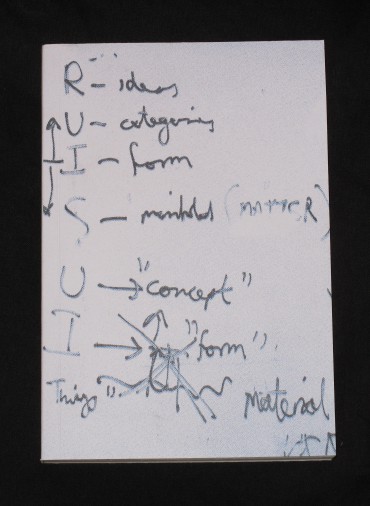 R - ideas
U - categories
I - form
S - manifold (MATTER)
U → "concept"
I → "form".
Things"
Material